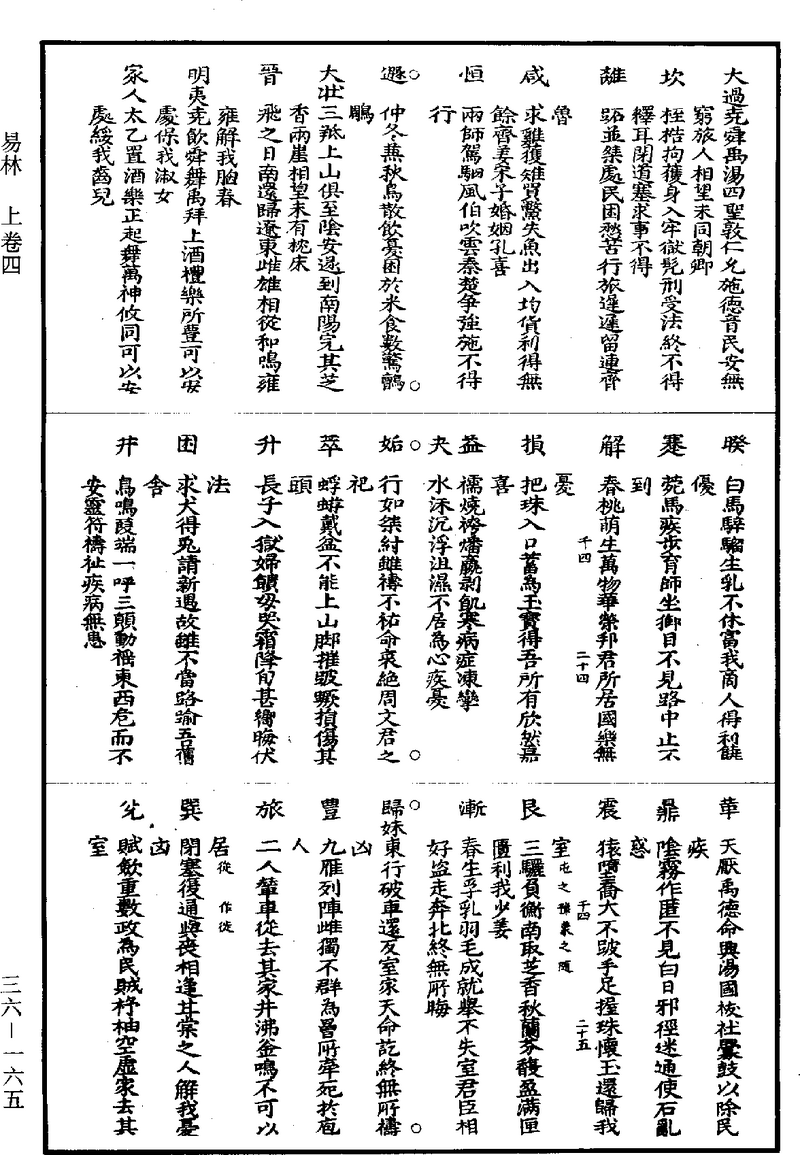 大過堯舜禹湯四聖敦仁允施德音民安無
窮旅人相望未同朝卿
坎　桎梏拘獲身入牢獄髡刑受法終不得
釋耳閉道塞求事不得
離　跖並桀處民困愁苦行旅遲遲留連齊
魯
咸　求雞獲雉買鱉失魚出入均貨利得無
餘齊姜宋子婚姻孔喜
恒　兩師駕駟風伯吹雲秦楚爭強施不得
行
遯　仲冬蕪秋鳥散飲憂困於米食數驚鸇
鵰
大壯三羝上山俱至陰安遂到南陽完其芝
香兩崖相望未有枕床
晉　飛之日南還歸遼東雌雄相從和鳴雍
雍解我胸春
明夷堯飲舜舞禹拜上酒禮樂所豐可以安
處保我淑女
家人太乙置酒樂正起舞萬神攸同可以安
處綏我齒兒
睽　白馬騂騮生乳不休富我商人得利饒
優
蹇　蒬馬疾步盲師坐御目不見路中止不
到
解　春桃萌生萬物華榮邦君所居國樂無
憂　千四　二十四
損　把珠入口蓄為玉寶得吾所有欣然嘉
喜
益　襦燒袴燔羸剝飢寒病症凍攣
夬　水沫沉浮沮濕不居為心疾憂
姤　行如桀紂雖禱不祐命衰絕周文君乏
祀
萃　蜉蝣戴盆不能上山腳摧跛蹶損傷其
頭
升　長子入獄婦饋母哭霜降旬甚嚮晦伏
法
困　求犬得兎請新遇故雖不當路踰吾舊
舍
井　鳥鳴陵端一呼三顛動搖東西危而不
安靈符禱祉疾病無患
革　天厭禹德命興湯國祓社釁鼓以除民
疾
鼎　陰霧作匿不見白日邪徑迷通使石亂
惑
震　猿墮喬大不跛手足握珠懷玉還歸我
室屯之豫蒙之隨　千四　二十五
艮　三驪負衡南取芝香秋蘭芬馥盈滿匣
匱利我少姜
漸　春生孚乳羽毛成就舉不失室君臣相
好盜走奔北終無所晦
歸妹東行破車還反室家天命訖終無所禱
凶
豐　九雁列陣雌獨不群為罾所牽死於庖
人
旅　二人輦車從去其家井沸釜鳴不可以
居從　作徙
巽　閉塞復通與喪相逢甘棠之人解我憂
凶
兌　賦歛重數政為民賊杼柚空虛家去其
室
易林　上卷四
三六－一六五